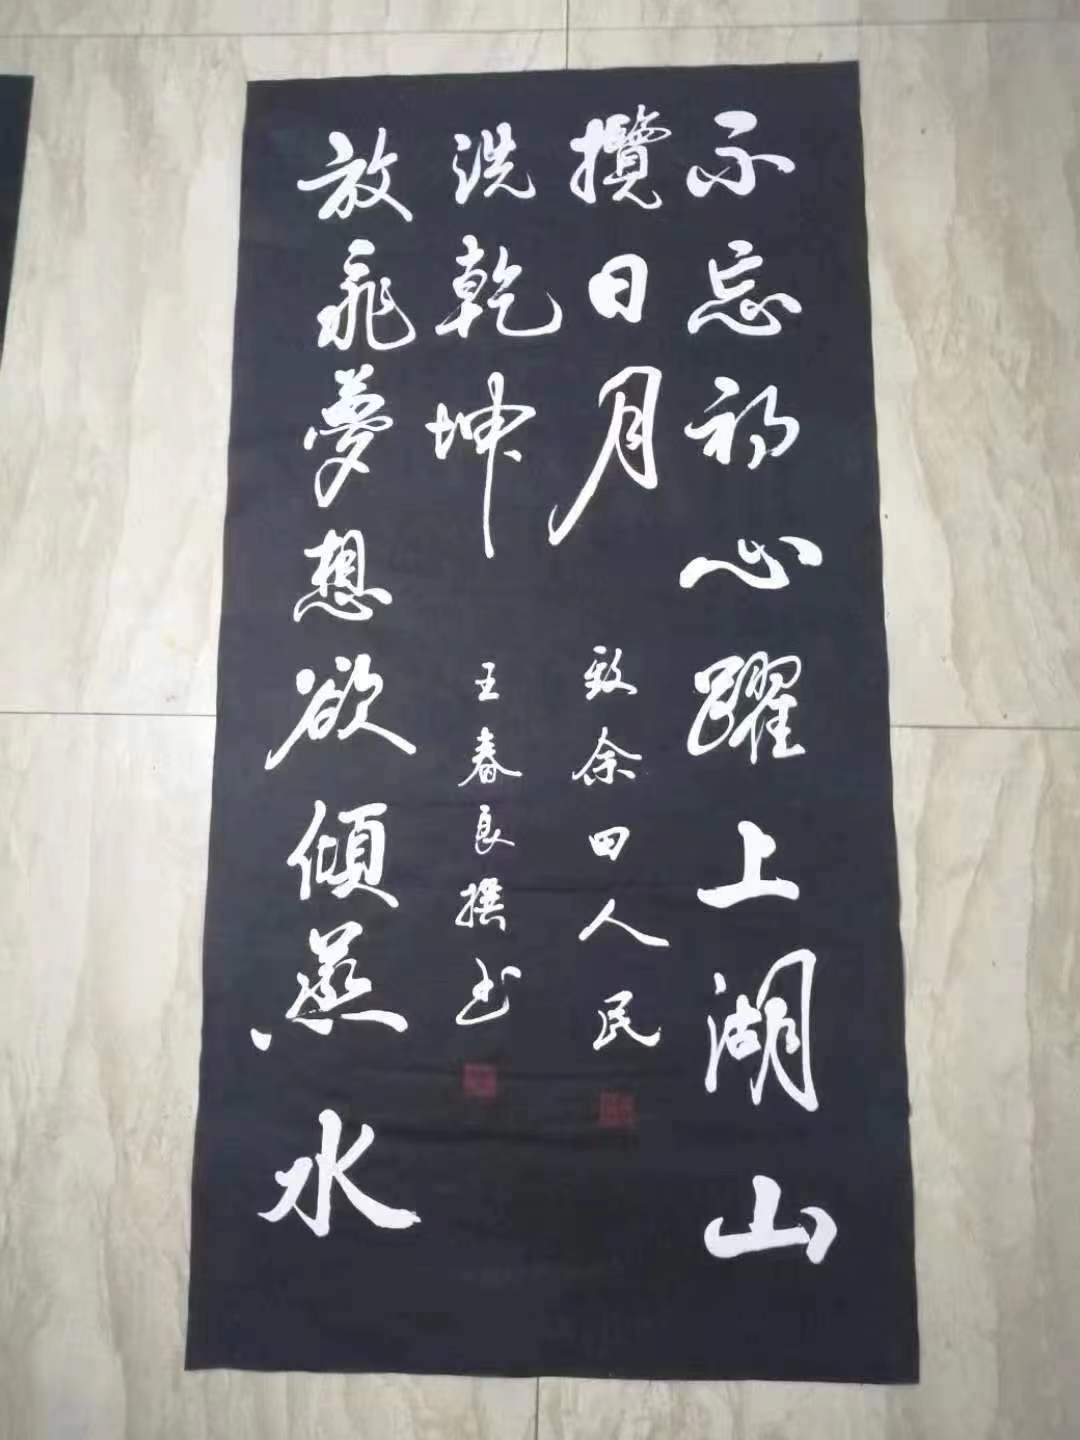 不忘初心躍上湖山
攬日月
放飛夢想欲傾蒸水
洗乾坤
致余田人民
王春良撰书